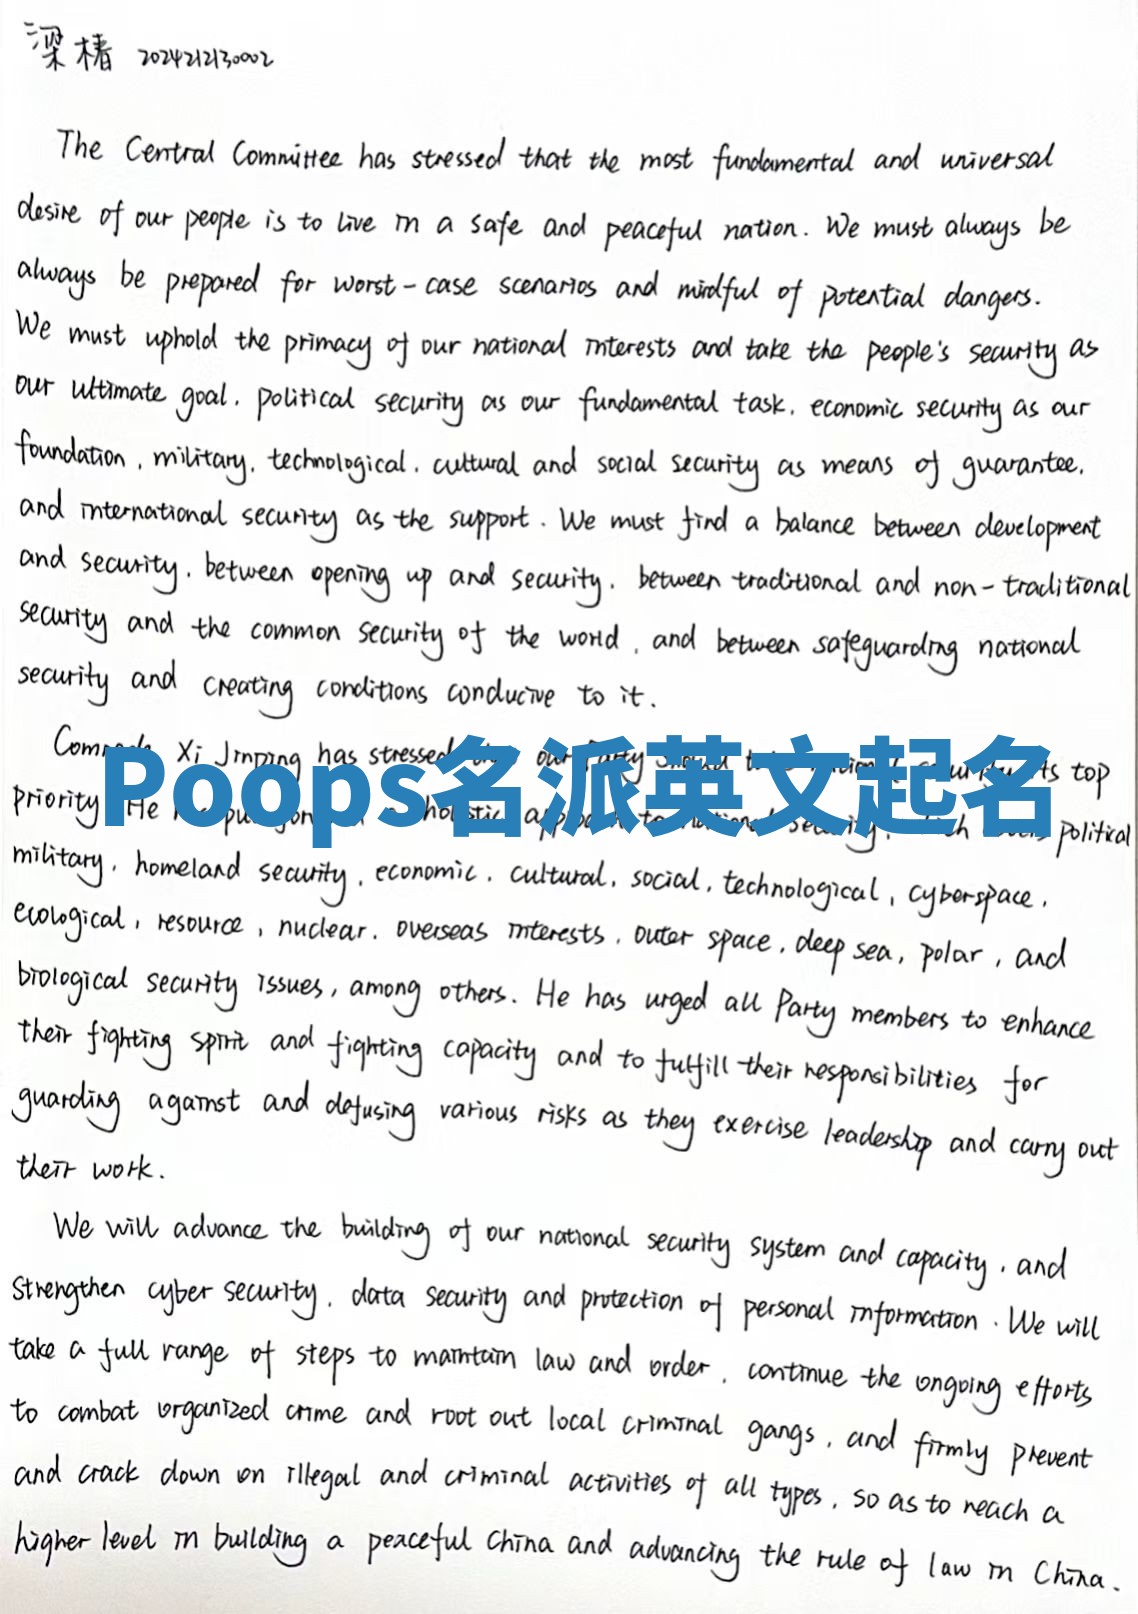 梁椿 2024212130002
The Central Committee has stressed that the most fundamental and universal
desire of our people is to live in a safe and peaceful nation. We must always be
always be prepared for worst-case scenarios and mindful of potential dangers.
We must uphold the primacy of our national interests and take the people's security as
our ultimate goal, political security as our fundamental task, economic security as our
foundation, military, technological, cultural and social security as means of guarantee,
and international security as the support. We must find a balance between development
and security, between opening up and security, between traditional and non-traditional
security and the common security of the world, and between safeguarding national
security and creating conditions conducive to it.
Xi Jinping has stressed our top
Poops名派英文起名
priority He political
military, homeland security, economic, cultural, social, technological, cyberspace,
ecological, resource, nuclear, overseas interests, outer space, deep sea, polar, and
biological security issues, among others. He has urged all Party members to enhance
their fighting spirit and fighting capacity and to fulfill their responsibilities for
guarding against and defusing various risks as they exercise leadership and carry out
their work.
We will advance the building of our national security system and capacity, and
strengthen cyber security, data security and protection of personal information. We will
take a full range of steps to maintain law and order, continue the ongoing efforts
to combat organized crime and root out local criminal gangs, and firmly prevent
and crack down on illegal and criminal activities of all types, so as to reach a
higher level in building a peaceful China and advancing the rule of law in China.